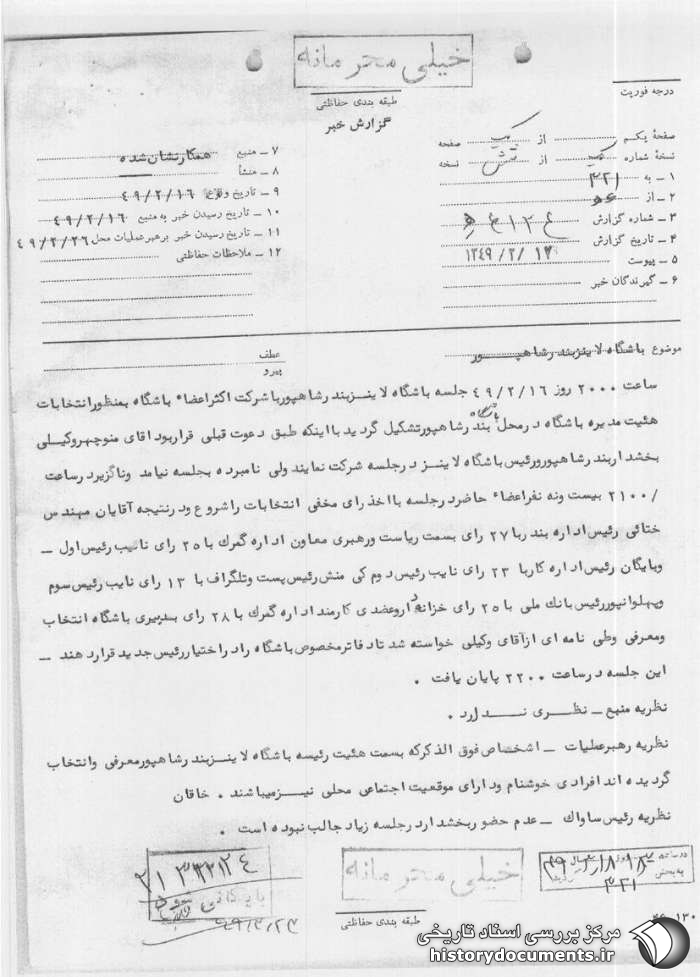 خیلی محرمانه
طبقه بندی حفاظتی
گزارش خبر
درجه فوریت
صفحهٔ یکم از یک صفحه
نسخهٔ شماره یک از شش نسخه
۱ ـ به ۳۲۱
۲ ـ از
۳ ـ شماره گزارش
۴ ـ تاریخ گزارش
۵ ـ پیوست
۶ ـ گیرندگان خبر
۷ ـ منبع همکارنشان‌شده
۸ ـ منشأ
۹ ـ تاریخ وقوع ۴۹/۲/۱۶
۱۰ ـ تاریخ رسیدن خبر به منبع ۴۹/۲/۱۶
۱۱ ـ تاریخ رسیدن خبر برهبرعملیات محل ۴۹/۲/۲۶
۱۲ ـ ملاحظات حفاظتی
موضوع باشگاه لاینزبندرشاهپور
عطف
پیرو
ساعت ۲۰۰۰ روز ۴۹/۲/۱۶ جلسه باشگاه لاینزبندرشاهپورباشرکت اکثراعضاء باشگاه بمنظورانتخابات
هئیت مدیره باشگاه درمحل باشگاه بندرشاهپورتشکیل گردید بااینکه طبق دعوت قبلی قراربودآقای منوچهروکیلی
بخشداربندرشاهپورورئیس باشگاه لاینز درجلسه شرکت نمایند ولی نامبرده بجلسه نیامد وناگزیردرساعت
/۲۱۰۰ بیست ونه نفراعضاء حاضردرجلسه بااخذرای مخفی انتخابات راشروع ودرنتیجه آقایان مهندس
ختائی رئیس اداره بندربا۲۷ رای بسمت ریاست ورهبری معاون اداره گمرک با۲۵ رای نائیب رئیس اول ـ
وبایگان رئیس اداره کاربا ۲۳ رای نایب رئیس دوم کی منش رئیس پست وتلگراف با ۱۳ رای نایب رئیس سوم
وپهلوانپوررئیس بانک ملی با۲۵ رای خزانه داروعضدی کارمنداداره گمرک با۲۸ رای بدبیری باشگاه انتخاب
ومعرفی وطی نامه ای ازآقای وکیلی خواسته شد تادفاترمخصوص باشگاه رادراختیاررئیس جدیدقراردهند ـ
این جلسه درساعت ۲۲۰۰ پایان یافت .
نظریه منبع ـ نظری ندارد .
نظریه رهبرعملیات ـ اشخصاص فوق الذکرکه بسمت هئیت رئیسه باشگاه لاینزبندرشاهپورمعرفی وانتخاب
گردیده اند افرادی خوشنام ودارای موقعیت اجتماعی محلی نیزمیباشند . خاقان
نظریه رئیس ساواک ـ عدم حضوربخشداردرجلسه زیادجالب نبوده است .
خیلی محرمانه
طبقه بندی حفاظتی
۳۲۱
مرکز بررسی اسناد تاریخی
historydocuments.ir